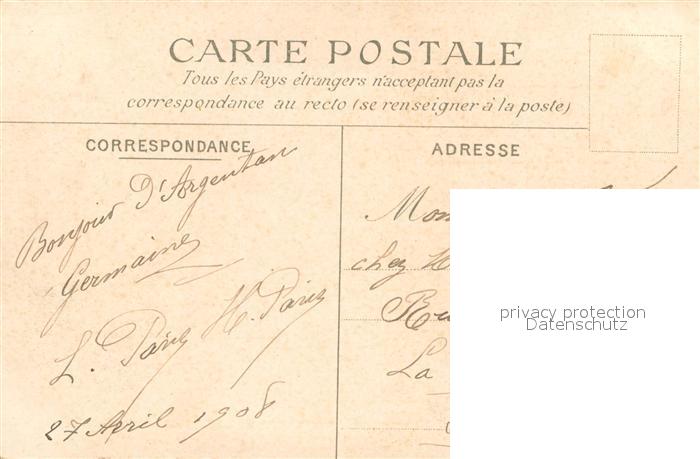 CARTE POSTALE
Tous les Pays étrangers n'acceptant pas la
correspondance au recto (se renseigner à la poste)
CORRESPONDANCE
Bonjour D'Argentan
Germaine
L. Paris H. Paris
27 Avril 1908
ADRESSE
Mon
chez
Ru
La
privacy protection
Datenschutz